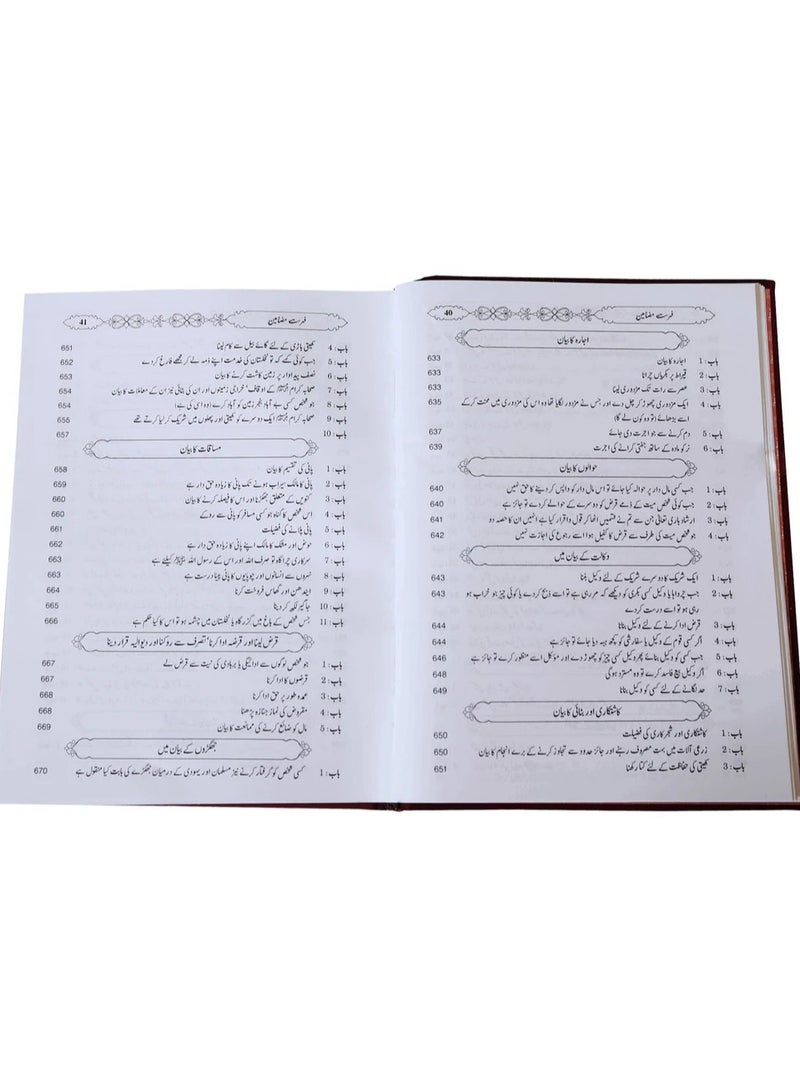 فہرست مضامین 40
اجارہ کا بیان
باب : 1 اجارہ کا بیان 633
باب : 2 قیراط پر بکریاں چرانا 633
باب : 3 عصر سے رات تک مزدوری لینا 633
باب : 4 ایک مزدوری چھوڑ کر چل دے اور جس نے مزدور لگایا تھا وہ اس کی مزدوری میں محنت کر کے 635
اسے بڑھائے (تو وہ کون لے گا)
باب : 5 دم کرنے سے جو اجرت دی جائے 637
باب : 6 نر کو مادہ کے ساتھ جفتی کرانے کی اجرت 639
حوالوں کا بیان
باب : 1 جب کسی مال دار پر حوالہ کیا جائے تو اس مال دار کو واپس کر دینے کا حق نہیں 640
باب : 2 جب کوئی شخص میت کے ذمے قرض کو دوسرے کے حوالے کر دے تو جائز ہے 640
باب : 3 ارشاد باری تعالیٰ جن سے تم نے قسمیں اٹھا کر قول و اقرار کیا ہے انہیں ان کا حصہ دو 641
باب : 4 جو شخص میت کی طرف سے قرض کا کفیل ہو اسے رجوع کی اجازت نہیں 642
وکالت کے بیان میں
باب : 1 ایک شریک کا دوسرے شریک کے لئے وکیل بننا 643
باب : 2 جب چرواہا یا وکیل کسی بکری کو دیکھے کہ مر رہی ہے تو اسے ذبح کر دے یا کوئی چیز جو خراب ہو 643
رہی ہو تو اسے درست کر دے
باب : 3 قرض ادا کرنے کے لئے وکیل بنانا 644
باب : 4 اگر کسی قوم کے وکیل یا سفارشی کو کچھ ہبہ دیا جائے تو جائز ہے 644
باب : 5 جب کسی کو وکیل بنائے پھر وکیل کسی چیز کو چھوڑ دے اور مؤکل اسے منظور کرے تو جائز ہے 646
باب : 6 اگر وکیل بیع فاسد کرے تو وہ مسترد ہو گی 648
باب : 7 حد لگانے کے لئے کسی کو وکیل بنانا 649
کاشتکاری اور بٹائی کا بیان
باب : 1 کاشتکاری اور شجر کاری کی فضیلت 650
باب : 2 زرعی آلات میں بہت مصروف رہنے اور جائز حدود سے تجاوز کرنے کے برے انجام کا بیان 650
باب : 3 کھیتی کی حفاظت کے لئے کتا رکھنا 651
فہرست مضامین 41
باب : 4 کھیتی باڑی کے لئے گائے بیل سے کام لینا 651
باب : 5 جب کوئی کہے کہ تو نخلستان کی خدمت اپنے ذمہ لے کر مجھے فارغ کر دے 652
باب : 6 نصف پیداوار پر زمین کاشت کرنے کا بیان 653
باب : 7 صحابہ کرام کے اوقاف' خراجی زمینوں اور ان کی بٹائی نیز ان کے معاملات کا بیان 654
باب : 8 جو شخص کسی بے آباد بنجر زمین کو آباد کرے (وہ اسی کی ہے) 654
باب : 9 صحابہ کرام ایک دوسرے کو کھیتی اور پھلوں میں شریک کر لیا کرتے تھے 655
باب : 10 657
مساقات کا بیان
باب : 1 پانی کی تقسیم کا بیان 658
باب : 2 پانی کا مالک سیراب ہونے تک پانی کا زیادہ حق دار ہے 659
باب : 3 کنویں کے متعلق جھگڑنا اور اس کا فیصلہ کرنے کا بیان 660
باب : 4 اس شخص کا گناہ جو کسی مسافر کو پانی سے روکے 660
باب : 5 پانی پلانے کی فضیلت 661
باب : 6 حوض اور مشک کا مالک اپنے پانی کا زیادہ حق دار ہے 662
باب : 7 سرکاری چراگاہ تو صرف اللہ اور اس کے رسول اللہ ﷺ کیلئے ہے 663
باب : 8 نہروں سے انسانوں اور چوپایوں کا پانی پینا درست ہے 663
باب : 9 ایندھن اور گھاس فروخت کرنا 664
باب : 10 جاگیر لکھ کر دینا 665
باب : 11 جس شخص کے باغ میں گزر گاہ یا نخلستان میں چشمہ ہو تو اس کا کیا حکم ہے 666
قرض لینا اور قرضہ ادا کرنا' تصرف سے روکنا اور دیوالیہ قرار دینا
باب : 1 جو شخص لوگوں سے ادائیگی یا بربادی کی نیت سے قرض لے 667
باب : 2 قرضوں کا ادا کرنا 667
باب : 3 عمدہ طور پر حق ادا کرنا 668
باب : 4 مقروض کی نماز جنازہ پڑھنا 668
باب : 5 مال کو ضائع کرنے کی ممانعت کا بیان 669
جھگڑوں کے بیان میں
باب : 1 کسی شخص کو گرفتار کرنے نیز مسلمان اور یہودی کے درمیان جھگڑے کی بابت کیا منقول ہے 670